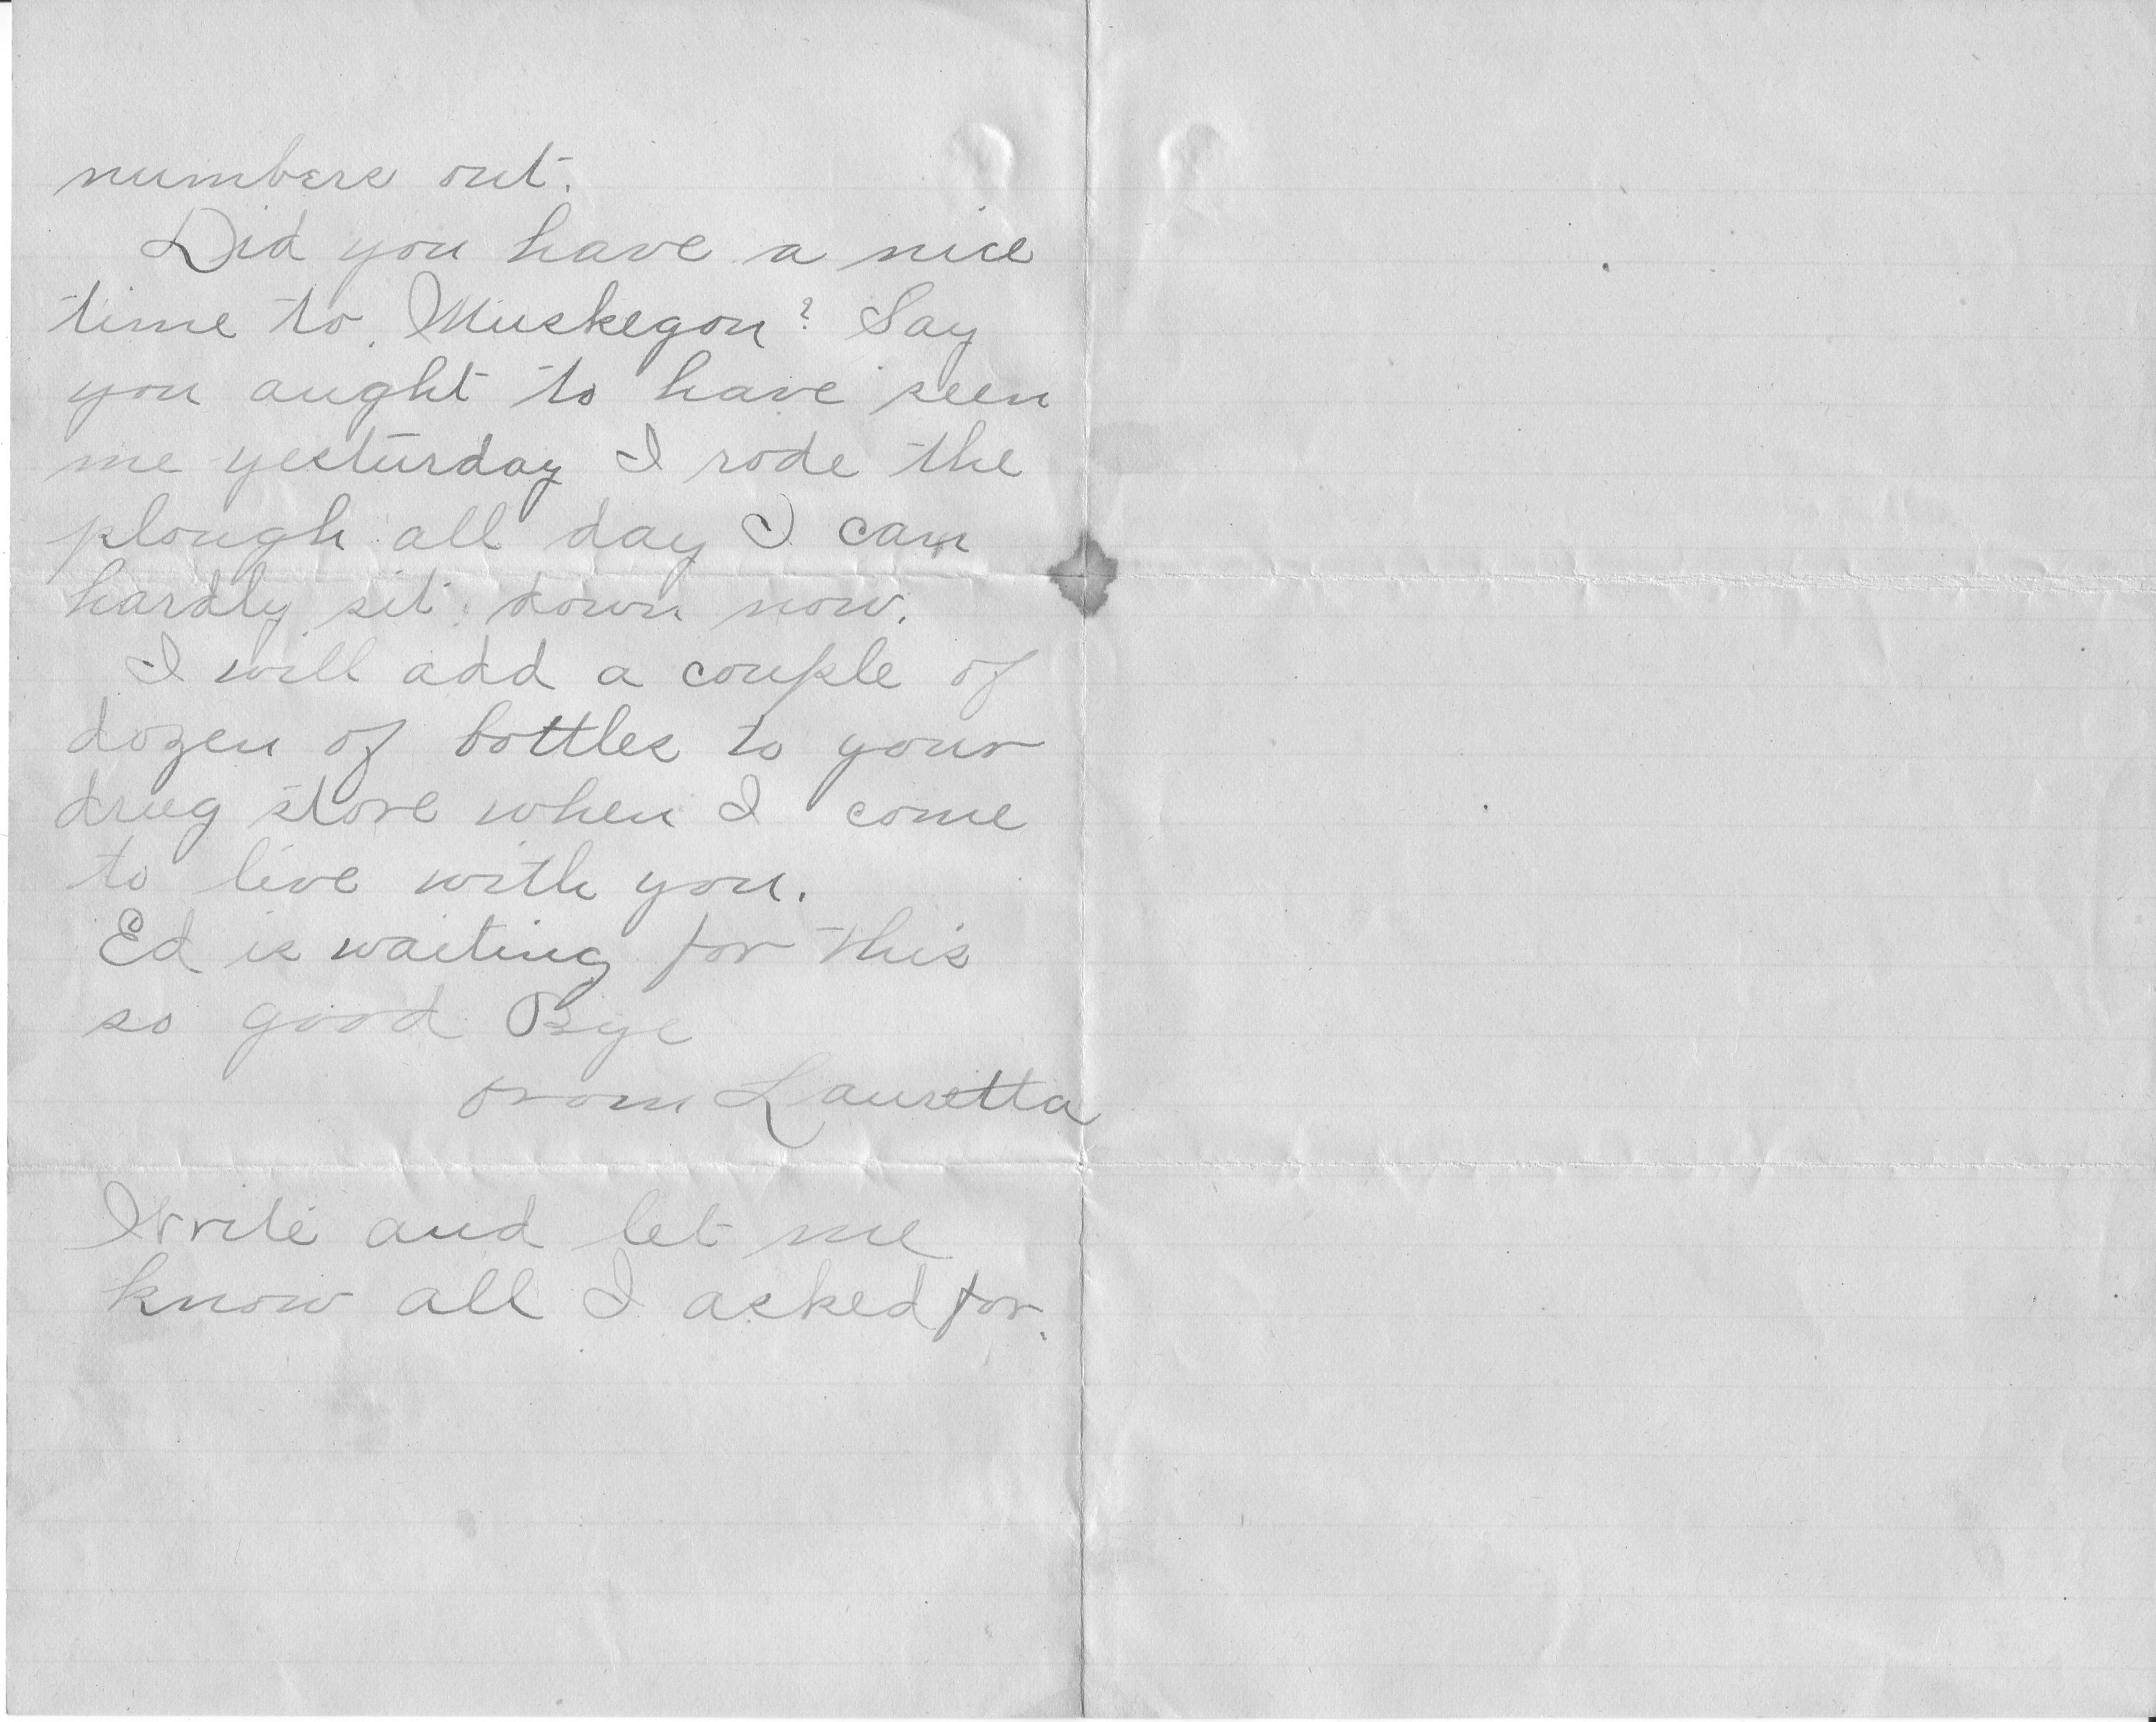 numbers out.
Did you have a nice
time to Muskegon? Say
you aught to have seen
me yesturday I rode the
plough all day I can
hardly sit down now.
I will add a couple of
dozen of bottles to your
drug store when I come
to live with you.
Ed is waiting for this
so good Bye
From Lauretta
Write and let me
know all I asked for.